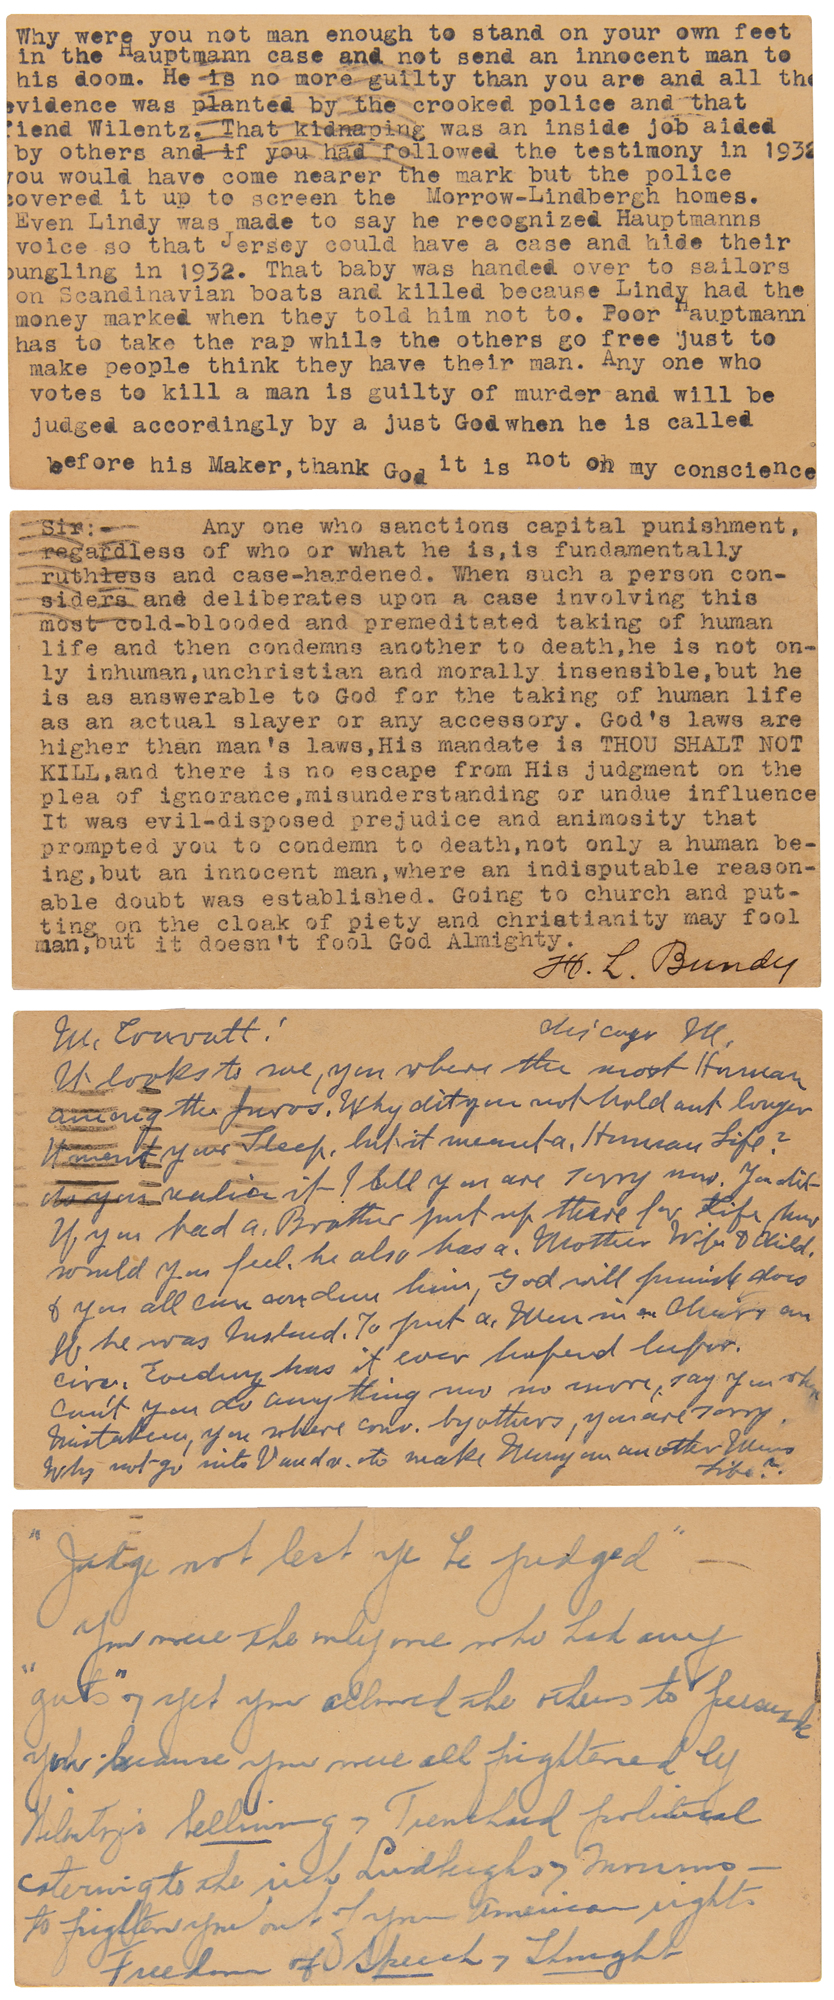 Why were you not man enough to stand on your own feet
in the Hauptmann case and not send an innocent man to
his doom. He is no more guilty than you are and all the
evidence was planted by the crooked police and that
fiend Wilentz. That kidnaping was an inside job aided
by others and if you had followed the testimony in 1932
you would have come nearer the mark but the police
covered it up to screen the Morrow-Lindbergh homes.
Even Lindy was made to say he recognized Hauptmanns
voice so that Jersey could have a case and hide their
bungling in 1932. That baby was handed over to sailors
on Scandinavian boats and killed because Lindy had the
money marked when they told him not to. Poor Hauptmann
has to take the rap while the others go free just to
make people think they have their man. Any one who
votes to kill a man is guilty of murder and will be
judged accordingly by a just God when he is called
before his Maker,thank God it is not on my conscience
Sir:- Any one who sanctions capital punishment,
regardless of who or what he is,is fundamentally
ruthless and case-hardened. When such a person con-
siders and deliberates upon a case involving this
most cold-blooded and premeditated taking of human
life and then condemns another to death,he is not on-
ly inhuman,unchristian and morally insensible,but he
is as answerable to God for the taking of human life
as an actual slayer or any accessory. God's laws are
higher than man's laws,His mandate is THOU SHALT NOT
KILL,and there is no escape from His judgment on the
plea of ignorance,misunderstanding or undue influence
It was evil-disposed prejudice and animosity that
prompted you to condemn to death,not only a human be-
ing,but an innocent man,where an indisputable reason-
able doubt was established. Going to church and put-
ting on the cloak of piety and christianity may fool
man,but it doesn't fool God Almighty.
H. L. Bundy
Chicago Ill.
It looks to me, you where the most Human
among the Juros. Why dit you not hold out longer
It ment your Sleep, but it meant a. Human Life?
do you realice it I bell you are sorry now. You dit
If you had a. Brother put up there for Life, how
would you feel. he also has a. Mother Wife & Child.
& you all can condem him, God will punish
If he was Instead. To put a. Men in a Chair on
has it ever hapend befor.
can't you do anything no more, say you where
Mistaken, you where conv. by others, you are sorry.
Why not go into Vaudv. to make Money on another Mens
Life?.
"Judge not lest ye be judged" —
You were the only one who had any
"guts" & yet you allowed the others to persuade
you because you were all frightened by
Wilentz's bellowing & Trenchard political
catering to the rich Lindberghs & Morrows —
to frighten you out of your American rights
Freedom of Speech & Thought